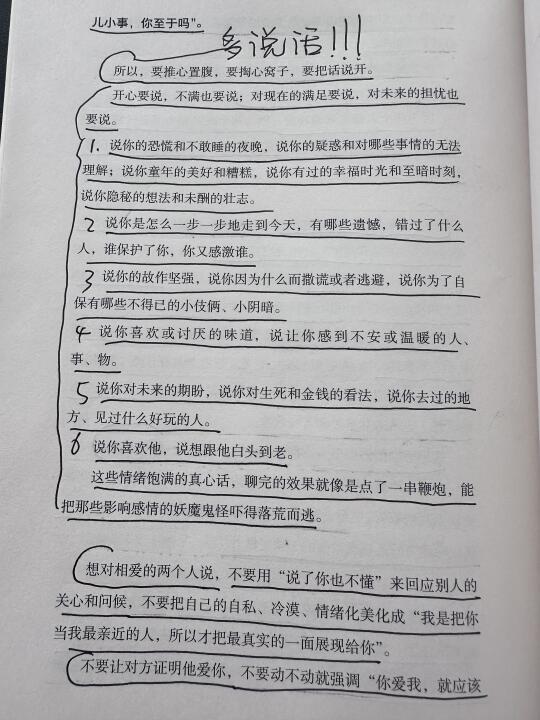 儿小事，你至于吗”。
多说话!!!
所以，要推心置腹，要掏心窝子，要把话说开。
开心要说，不满也要说；对现在的满足要说，对未来的担忧也
要说。
1. 说你的恐慌和不敢睡的夜晚，说你的疑惑和对哪些事情的无法
理解；说你童年的美好和糟糕，说你有过的幸福时光和至暗时刻，
说你隐秘的想法和未酬的壮志。
2 说你是怎么一步一步地走到今天，有哪些遗憾，错过了什么
人，谁保护了你，你又感激谁。
3 说你的故作坚强，说你因为什么而撒谎或者逃避，说你为了自
保有哪些不得已的小伎俩、小阴暗。
4 说你喜欢或讨厌的味道，说让你感到不安或温暖的人、
事、物。
5 说你对未来的期盼，说你对生死和金钱的看法，说你去过的地
方、见过什么好玩的人。
6 说你喜欢他，说想跟他白头到老。
这些情绪饱满的真心话，聊完的效果就像是点了一串鞭炮，能
把那些影响感情的妖魔鬼怪吓得落荒而逃。
想对相爱的两个人说，不要用“说了你也不懂”来回应别人的
关心和问候，不要把自己的自私、冷漠、情绪化美化成“我是把你
当我最亲近的人，所以才把最真实的一面展现给你”。
不要让对方证明他爱你，不要动不动就强调“你爱我，就应该